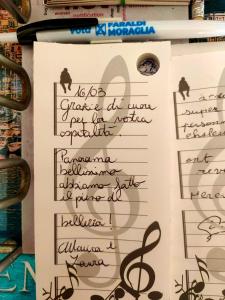 vota FARALDI
MORAGLIA
16/03
Grazie di cuore
per la vostra
ospitalità.
Panorama
bellissimo
abbiamo fatto
il pieno di
bellezza!
Maura e
super
person